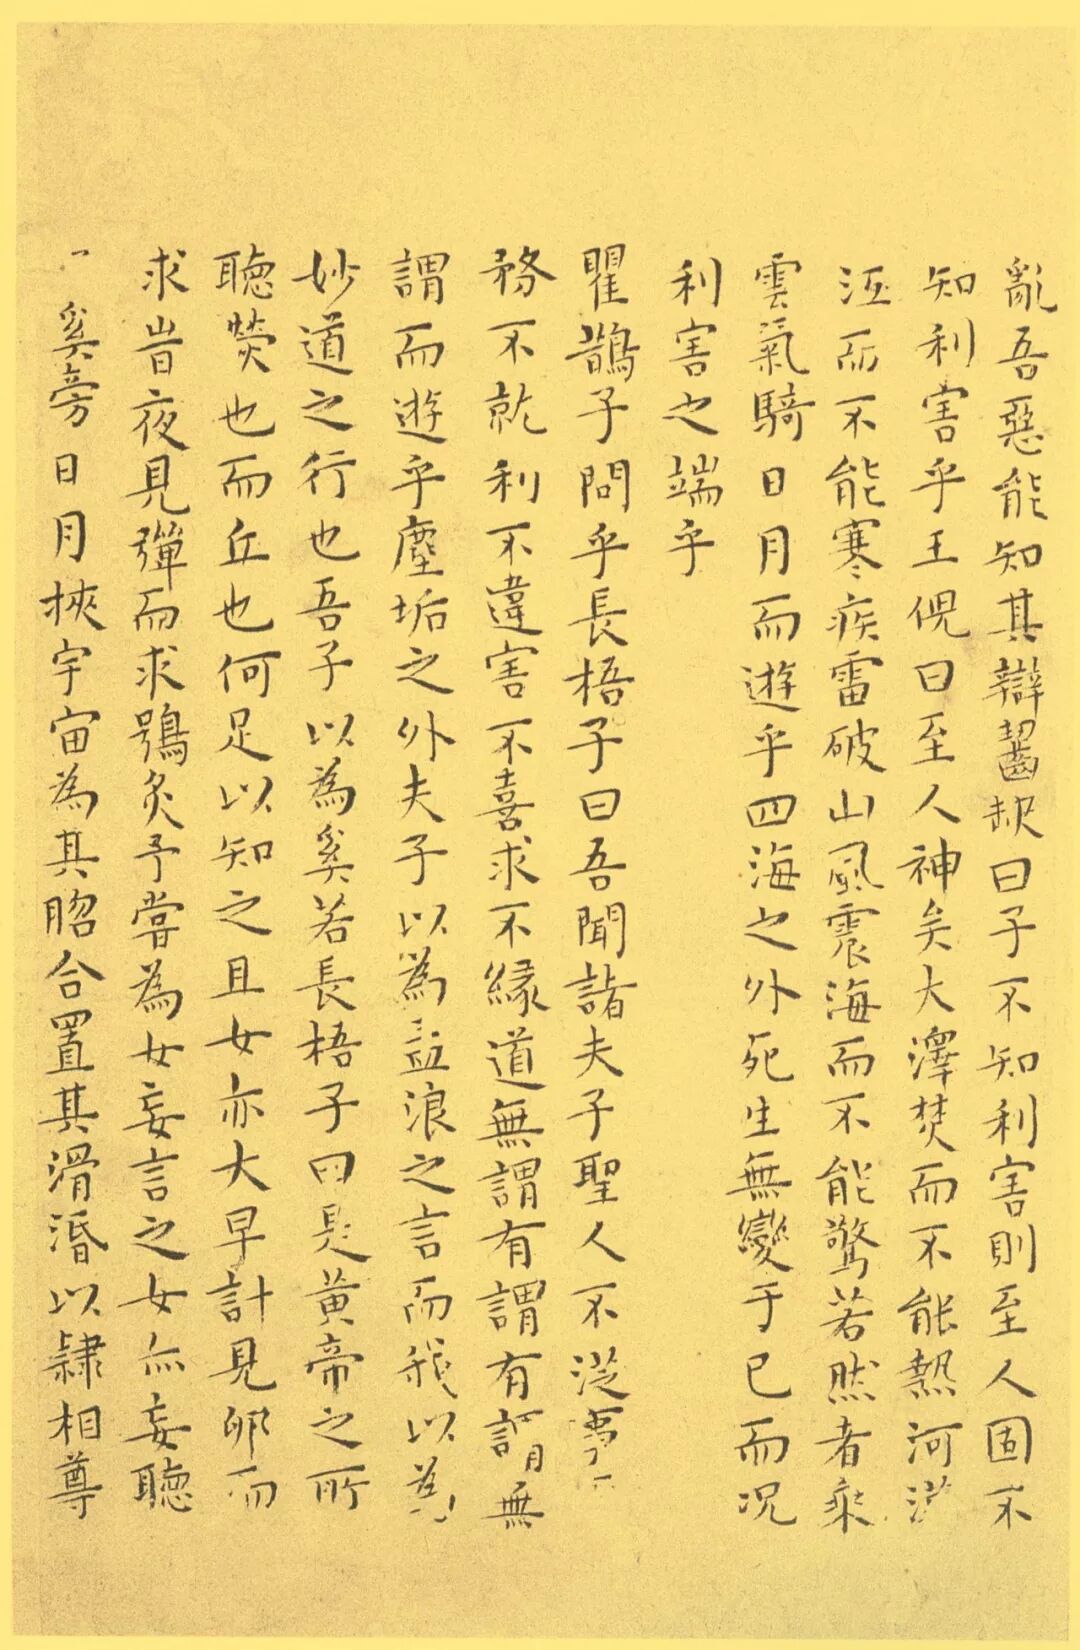 亂吾惡能知其辯齧缺曰子不知利害則至人固不
知利害乎王倪曰至人神矣大澤焚而不能熱河漢
沍而不能寒疾雷破山風震海而不能驚若然者乘
雲氣騎日月而遊乎四海之外死生無變于已而況
利害之端乎
瞿鵲子問乎長梧子曰吾聞諸夫子聖人不從事
務不就利不違害不喜求不緣道無謂有謂有謂無
謂而遊乎塵垢之外夫子以為孟浪之言而我以為
妙道之行也吾子以為奚若長梧子曰是黃帝之所
聽熒也而丘也何足以知之且女亦大早計見卵而
求旹夜見彈而求鴞炙予嘗為女妄言之女亦妄聽
奚旁日月挾宇宙為其脗合置其滑湣以隸相尊